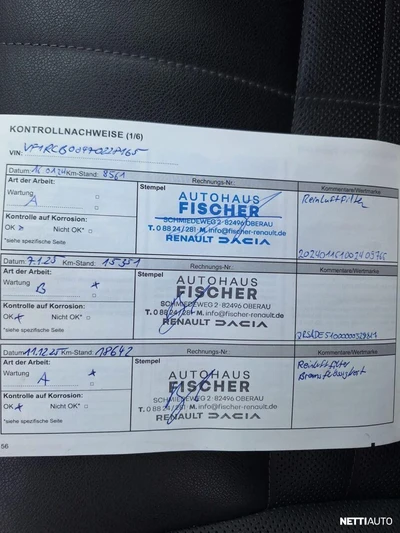 KONTROLLNACHWEISE (1/6)
VIN:
Datum: 16.01.24 Km-Stand: 8561 Rechnungs-Nr. Kommentare/Wertmarke
Art der Arbeit: Stempel Reinluftfilter
Wartung A
AUTOHAUS
FISCHER
Kontrolle auf Korrosion:
SCHMIEDEWEG 2 · 82496 OBERAU
OK Nicht OK*
T. 0 88 24 / 281 · M. info@fischer-renault.de
*siehe spezifische Seite
RENAULT DACIA
Datum: 7.1.25 Km-Stand: 15351 Rechnungs-Nr. Kommentare/Wertmarke
Art der Arbeit: Stempel
Wartung B x
AUTOHAUS
FISCHER
Kontrolle auf Korrosion:
SCHMIEDEWEG 2 · 82496 OBERAU
OK x Nicht OK*
T. 0 88 24 / 281 · M. info@fischer-renault.de
*siehe spezifische Seite
RENAULT DACIA
Datum: 11.12.25 Km-Stand: 18642 Rechnungs-Nr. Kommentare/Wertmarke
Art der Arbeit: Stempel Reinluftfilter
Wartung A x
AUTOHAUS
FISCHER
Kontrolle auf Korrosion:
SCHMIEDEWEG 2 · 82496 OBERAU
OK x Nicht OK*
T. 0 88 24 / 281 · M. info@fischer-renault.de
*siehe spezifische Seite
RENAULT DACIA
56
NETTIAUTO